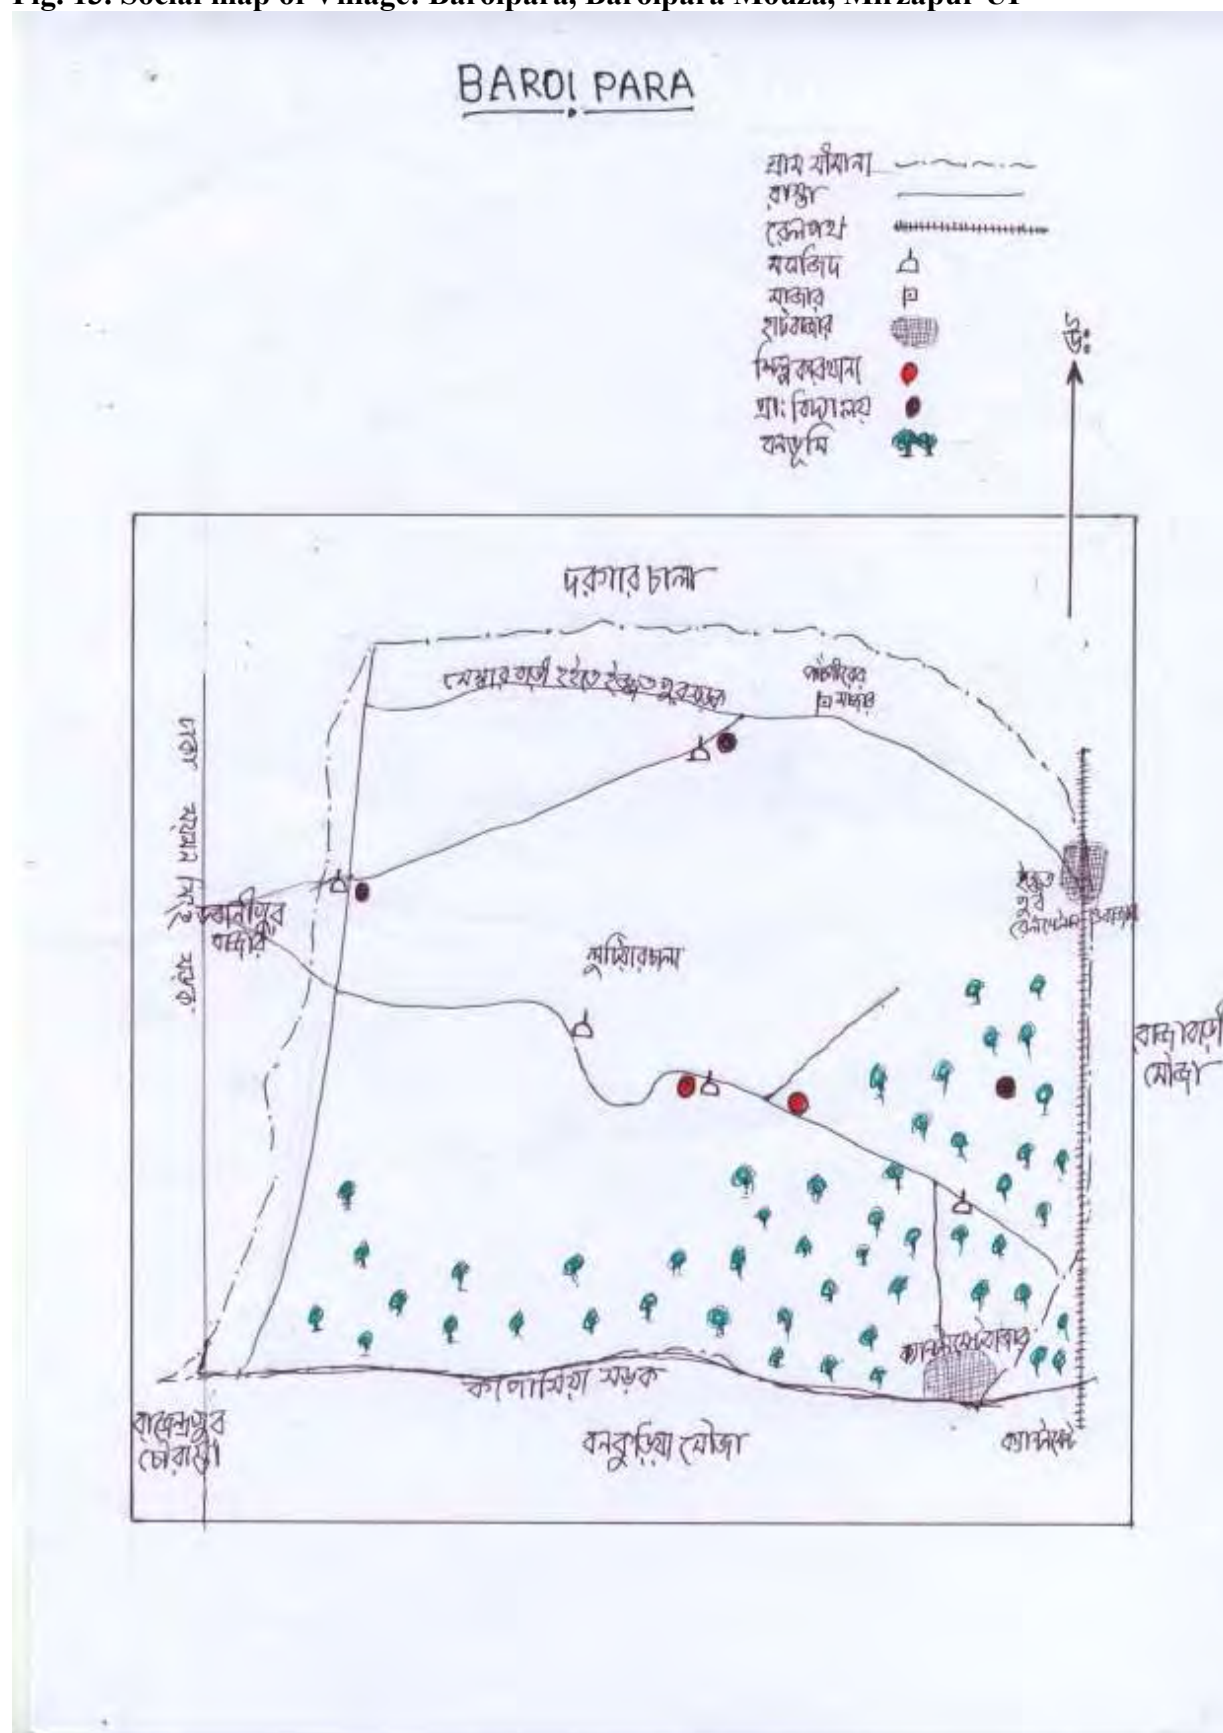 Fig. 13. Social map of Village: Baroipara, Baroipara Mouza, Mirzapur UP
BAROI PARA
গ্রাম সীমানা
রাস্তা
রেলপথ
মসজিদ
মাজার
হাটবাজার
শিল্পকারখানা
প্রাঃ বিদ্যালয়
বনভূমি
উঃ
দরগার চালা
মেম্বার বাড়ী হইতে ইজ্জতপুর সড়ক
মাজার
ঢাকা ময়মনসিংহ সড়ক
ভবানীপুর
বাজার
ইজ্জত
পুর
রাজাবাড়ী
মৌজা
ক্যান্টনমেন্ট বাজার
কাপাসিয়া সড়ক
রাজেন্দ্রপুর
চৌরাস্তা
বনকুড়িয়া মৌজা